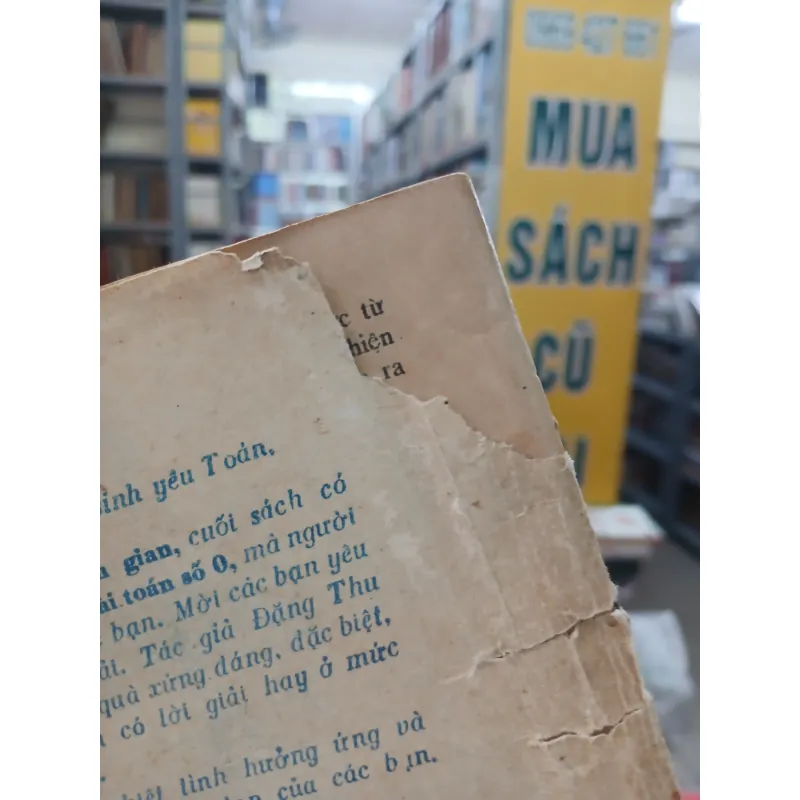 MUA
SÁCH
CŨ
từ
hiện
ra
yêu Toán,
gian, cuối sách có
toán số 0, mà người
bạn. Mời các bạn yêu
Tác giả Đặng Thu
quà xứng đáng, đặc biệt,
có lời giải hay ở mức
tình hưởng ứng và
của các bạn.